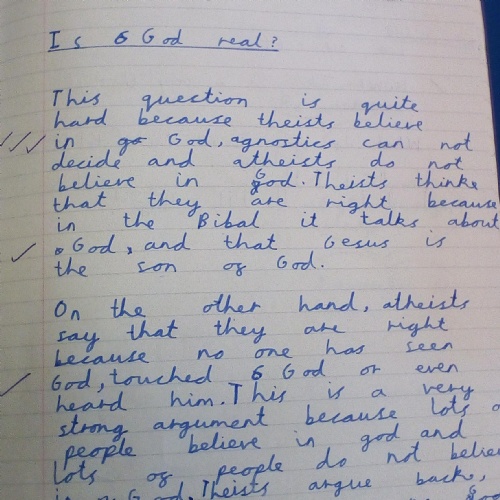 Is God real?
This question is quite
hard because theists believe
in God, agnostics can not
decide and atheists do not
believe in God. Theists thinke
that they are right because
in the Bibal it talks about
God, and that Gesus is
the son of God.
On the other hand, atheists
say that they are right
because no one has seen
God, touched God or even
heard him. This is a very
strong argument because lots
people believe in god and
lots of people do not
God. Theists argue back,